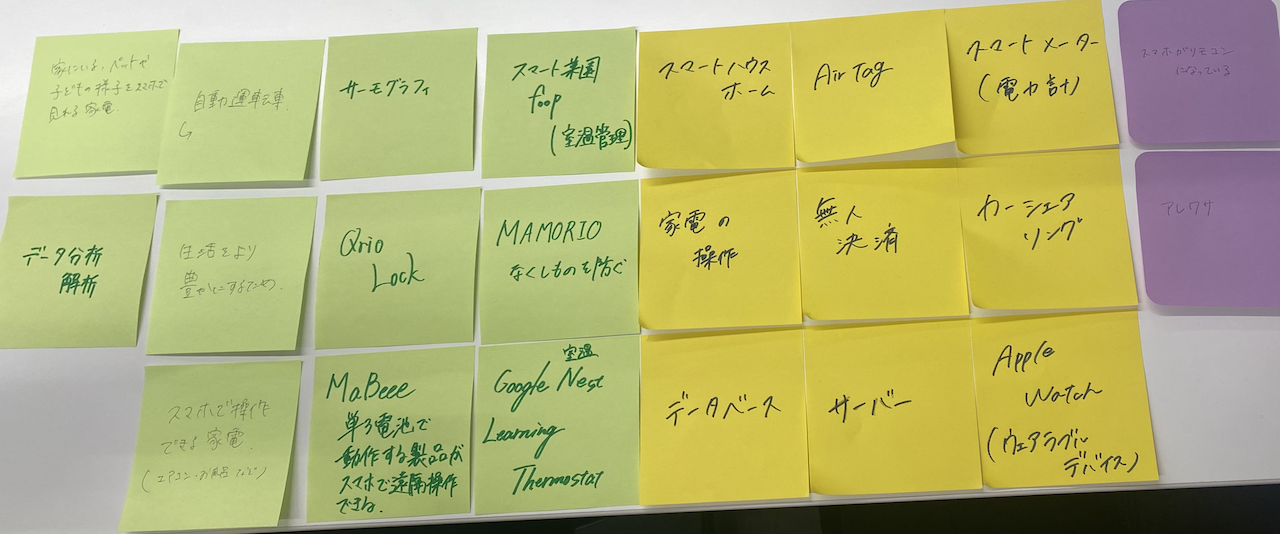 家にいる、ペットや
子どもの様子をスマホで
見れる家電
自動運転車
↳
サーモグラフィ
スマート菜園
foop
(室温管理)
スマートハウス
ホーム
Air Tag
スマートメーター
(電力計)
スマホがリモコン
になっている
データ分析
解析
生活をより
豊かにするため.
Qrio
Lock
MAMORIO
なくしものを防ぐ
家電の
操作
無人
決済
カーシェア
リング
アレクサ
スマホで操作
できる家電
(エアコン・お風呂など)
MaBeee
単3電池で
動作する製品が
スマホで遠隔操作
できる.
室温
Google Nest
Learning
Thermostat
データベース
サーバー
Apple
Watch
(ウェアラブル
デバイス)